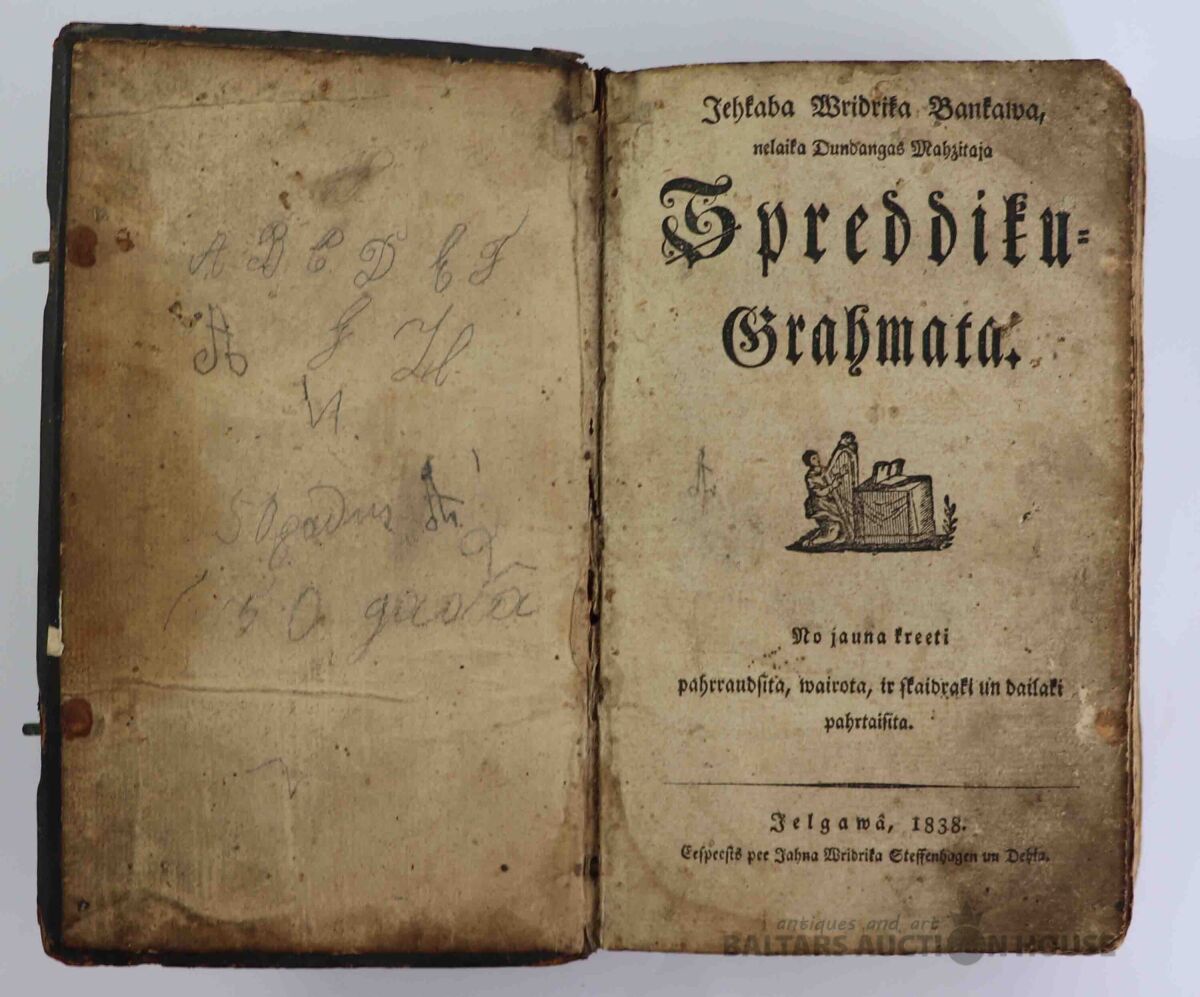 A B C D E F
A G H
N
50 gadus A.
50 gadā
Jehkaba Wridrika Bankawa,
nelaika Dundangas Mahzitaja
Spreddiku-
Grahmata.
A.
No jauna kreeti
pahrraudsita, wairota, ir skaidraki un dailaki
pahrtaisita.
Jelgawâ, 1838.
Eespeests pee Jahna Wridrika Steffenhagen un Dehla.
antiques and art
BALTARS AUCTION HOUSE